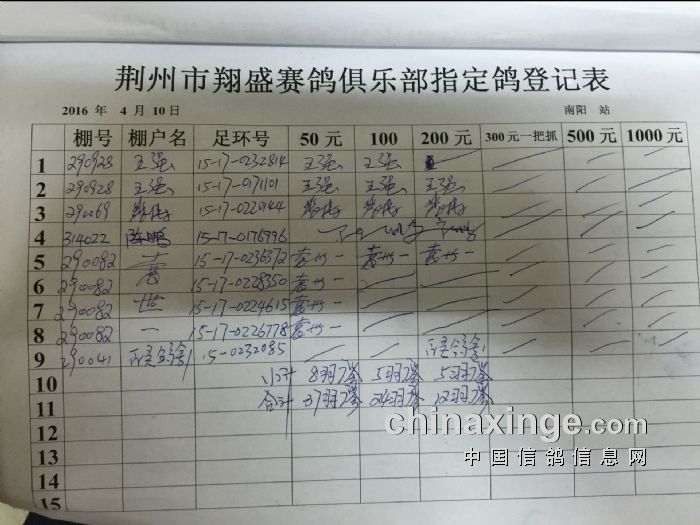 荆州市翔盛赛鸽俱乐部指定鸽登记表
2016 年 4 月 10 日 南阳 站
棚号 棚户名 足环号 50 元 100 200 元 300元一把抓 500 元 1000 元
1 290928 王强 15-17-0232814 王强 王强
2 290928 王强 15-17-0171101 王强 王强 王强
3 290069 15-17-0220144
4 314022 陈鹏 15-17-0176996
5 290082 袁 15-17-0236372 袁世一 袁世一 袁世一
6 290082 15-17-0228350 袁世一
7 290082 世 15-17-0224615 袁世一
8 290082 一 15-17-0226778 袁世一
9 290041 15-0232085
10 小计 8羽 5羽 5羽
11 合计 37羽 24羽 12羽
12
13
14
15
chinaxinge.com
中国信鸽信息网